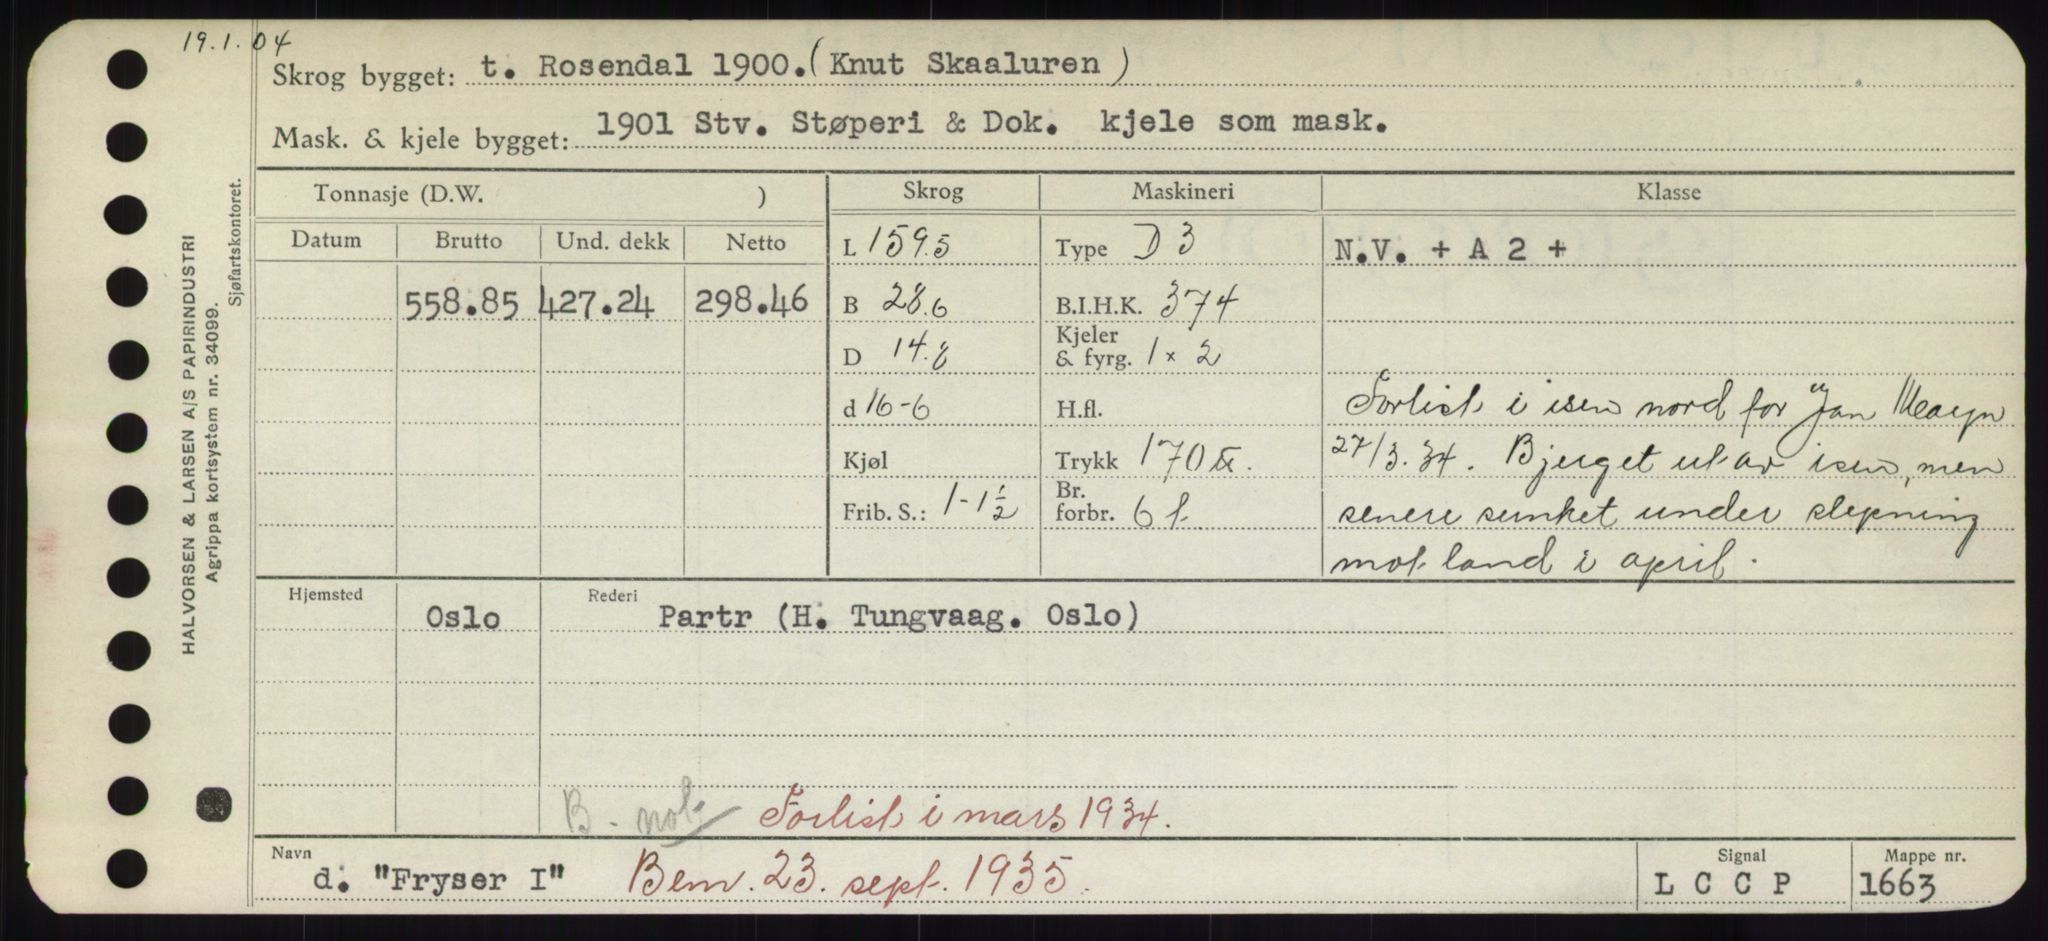 19.1.04
Skrog bygget: t. Rosendal 1900. (Knut Skaaluren)
Mask. & kjele bygget: 1901 Stv. Støperi & Dok. kjele som mask.
Tonnasje (D.W. ) Skrog Maskineri Klasse
Datum Brutto Und. dekk Netto
L 159.5 Type D 3 N.V. + A 2 +
558.85 427.24 298.46 B 28.6 B.I.H.K. 374
D 14.8 Kjeler & fyrg. 1 × 2
d 16-6 H.fl. Forlist i isen nord for Jan Mayn
Kjøl Trykk 170 ℔. 27/3.34. Bjerget ut av isen, men
Frib. S.: 1-1½ Br. forbr. 6 t. senere sunket under slepning
mot land i april.
Hjemsted Oslo Rederi Partr (H. Tungvaag. Oslo)
B. not Forlist i mars 1934.
Navn d. "Fryser I" Bem. 23. sept. 1935. Signal L C C P Mappe nr. 1663
HALVORSEN & LARSEN A/S PAPIRINDUSTRI
Agrippa kortsystem nr. 34099.
Sjøfartskontoret.